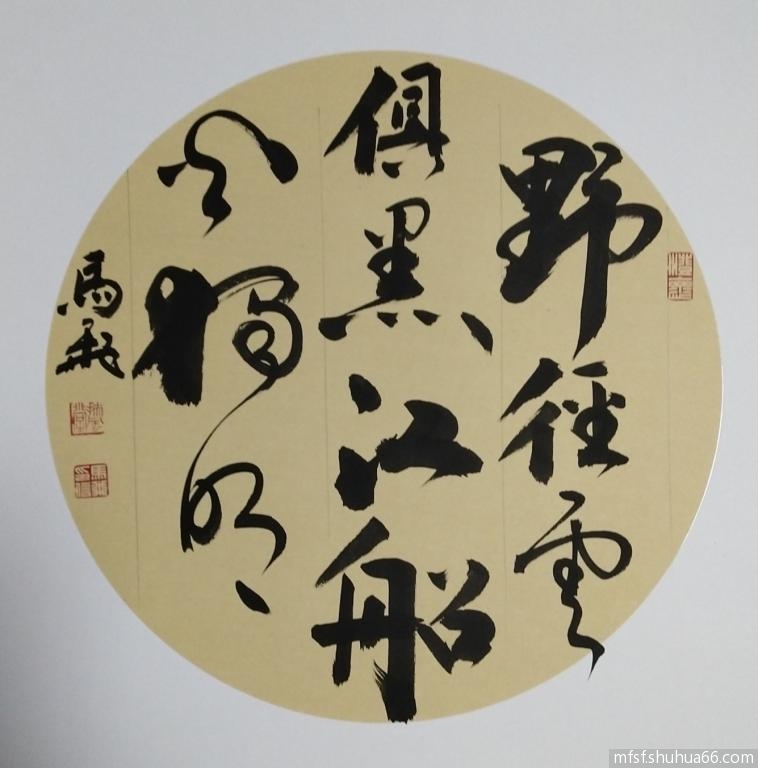 野径雲
俱黑江船
火獨明
馬飛
mfsf.shuhua66.com